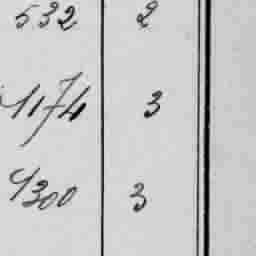 532 2
1174 3
1300 3